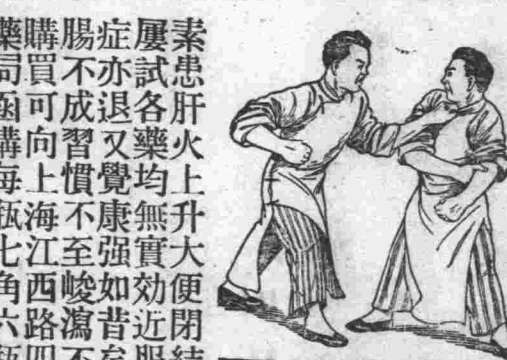 素患肝火上升大便閉結
屢試各藥均無實効近服
症亦退又覺康强如昔
腸不成習慣不至峻瀉不
購買可向上海江西路四
藥局函購每瓶七角六瓶